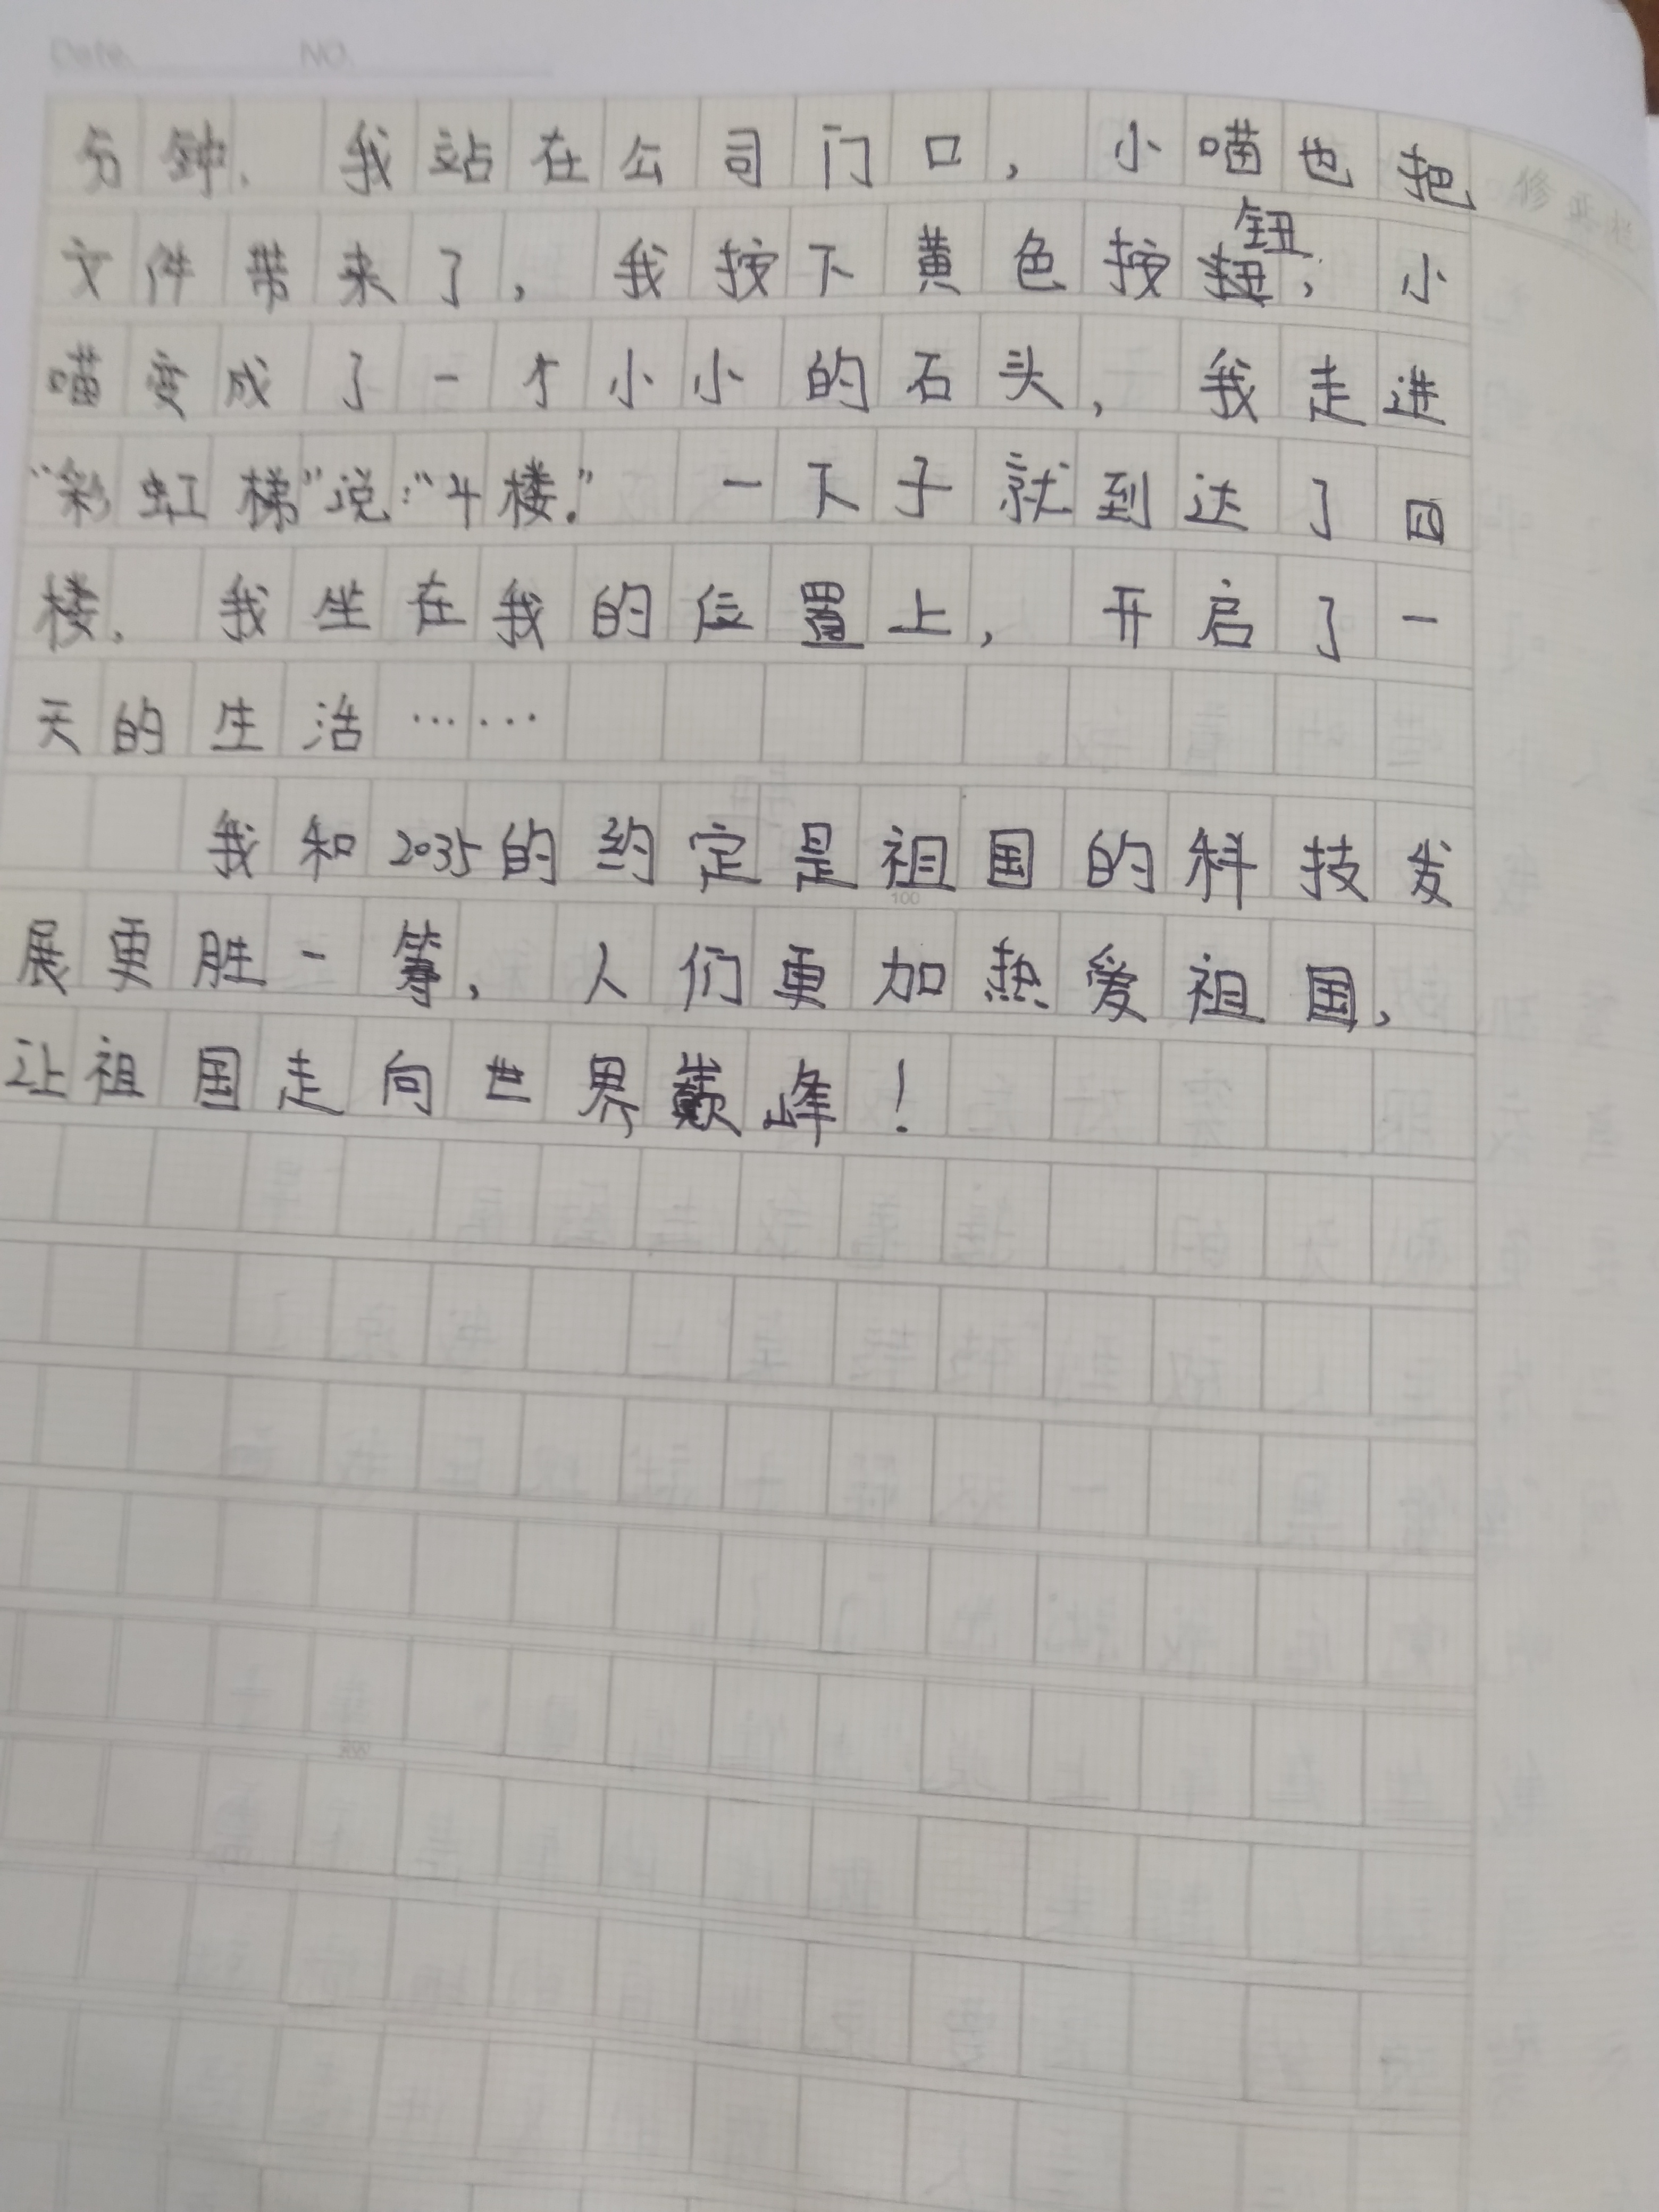 Date. NO.
分钟. 我站在公司门口，小喵也把
文件带来了，我按下黄色按钮，小
喵变成了一个小小的石头，我走进
“彩虹梯”说：“4楼.” 一下子就到达了四
楼. 我坐在我的位置上，开启了一
天的生活……
我和2035的约定是祖国的科技发
100
展更胜一筹，人们更加热爱祖国，
让祖国走向世界巅峰！
200